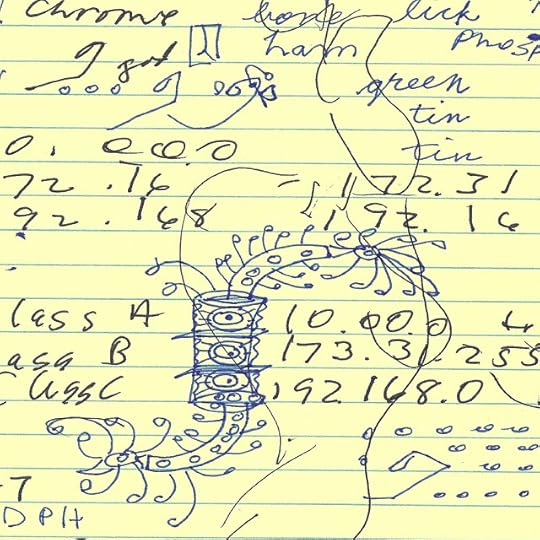 Chrome lick
ham phosp
got green
tin
0. 00.0 tin
72 .16 - 172.31
92 .168 192. 16
lass A 10.00.0 tr
ass B 173.31.255
Class C 192 168.0
7
DPH